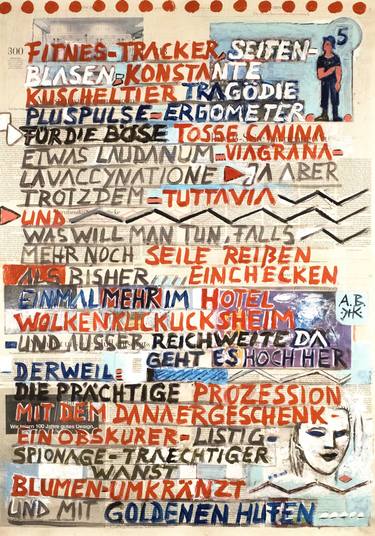 300
5
FITNES-TRACKER, SEITEN-
BLASEN, KONSTANTE
KUSCHELTIER TRAGÖDIE
PLUSPULSE-ERGOMETER
FÜR DIE BÖSE TOSSE CANINA
ETWAS LAUDANUM-VIAGRANA-
LAVACCYNATIONE JA ABER
TROTZDEM-TUTTAVIA
UND
WAS WILL MAN TUN, FALLS
MEHR NOCH SEILE REIẞEN
ALS BISHER EINCHECKEN
EINMAL MEHR IM HOTEL
A.B.
WOLKENKUCKUCKSHEIM
UND AUSSER REICHWEITE DA
GEHT ES HOCH HER
DERWEIL=
DIE PRÄCHTIGE PROZESSION
MIT DEM DANAERGESCHENK-
Wir feiern 100 Jahre gutes Design.
EIN OBSKURER-LISTIG-
SPIONAGE-TRAECHTIGER
WANST
BLUMEN-UMKRÄNZT
UND MIT GOLDENEN HUFEN